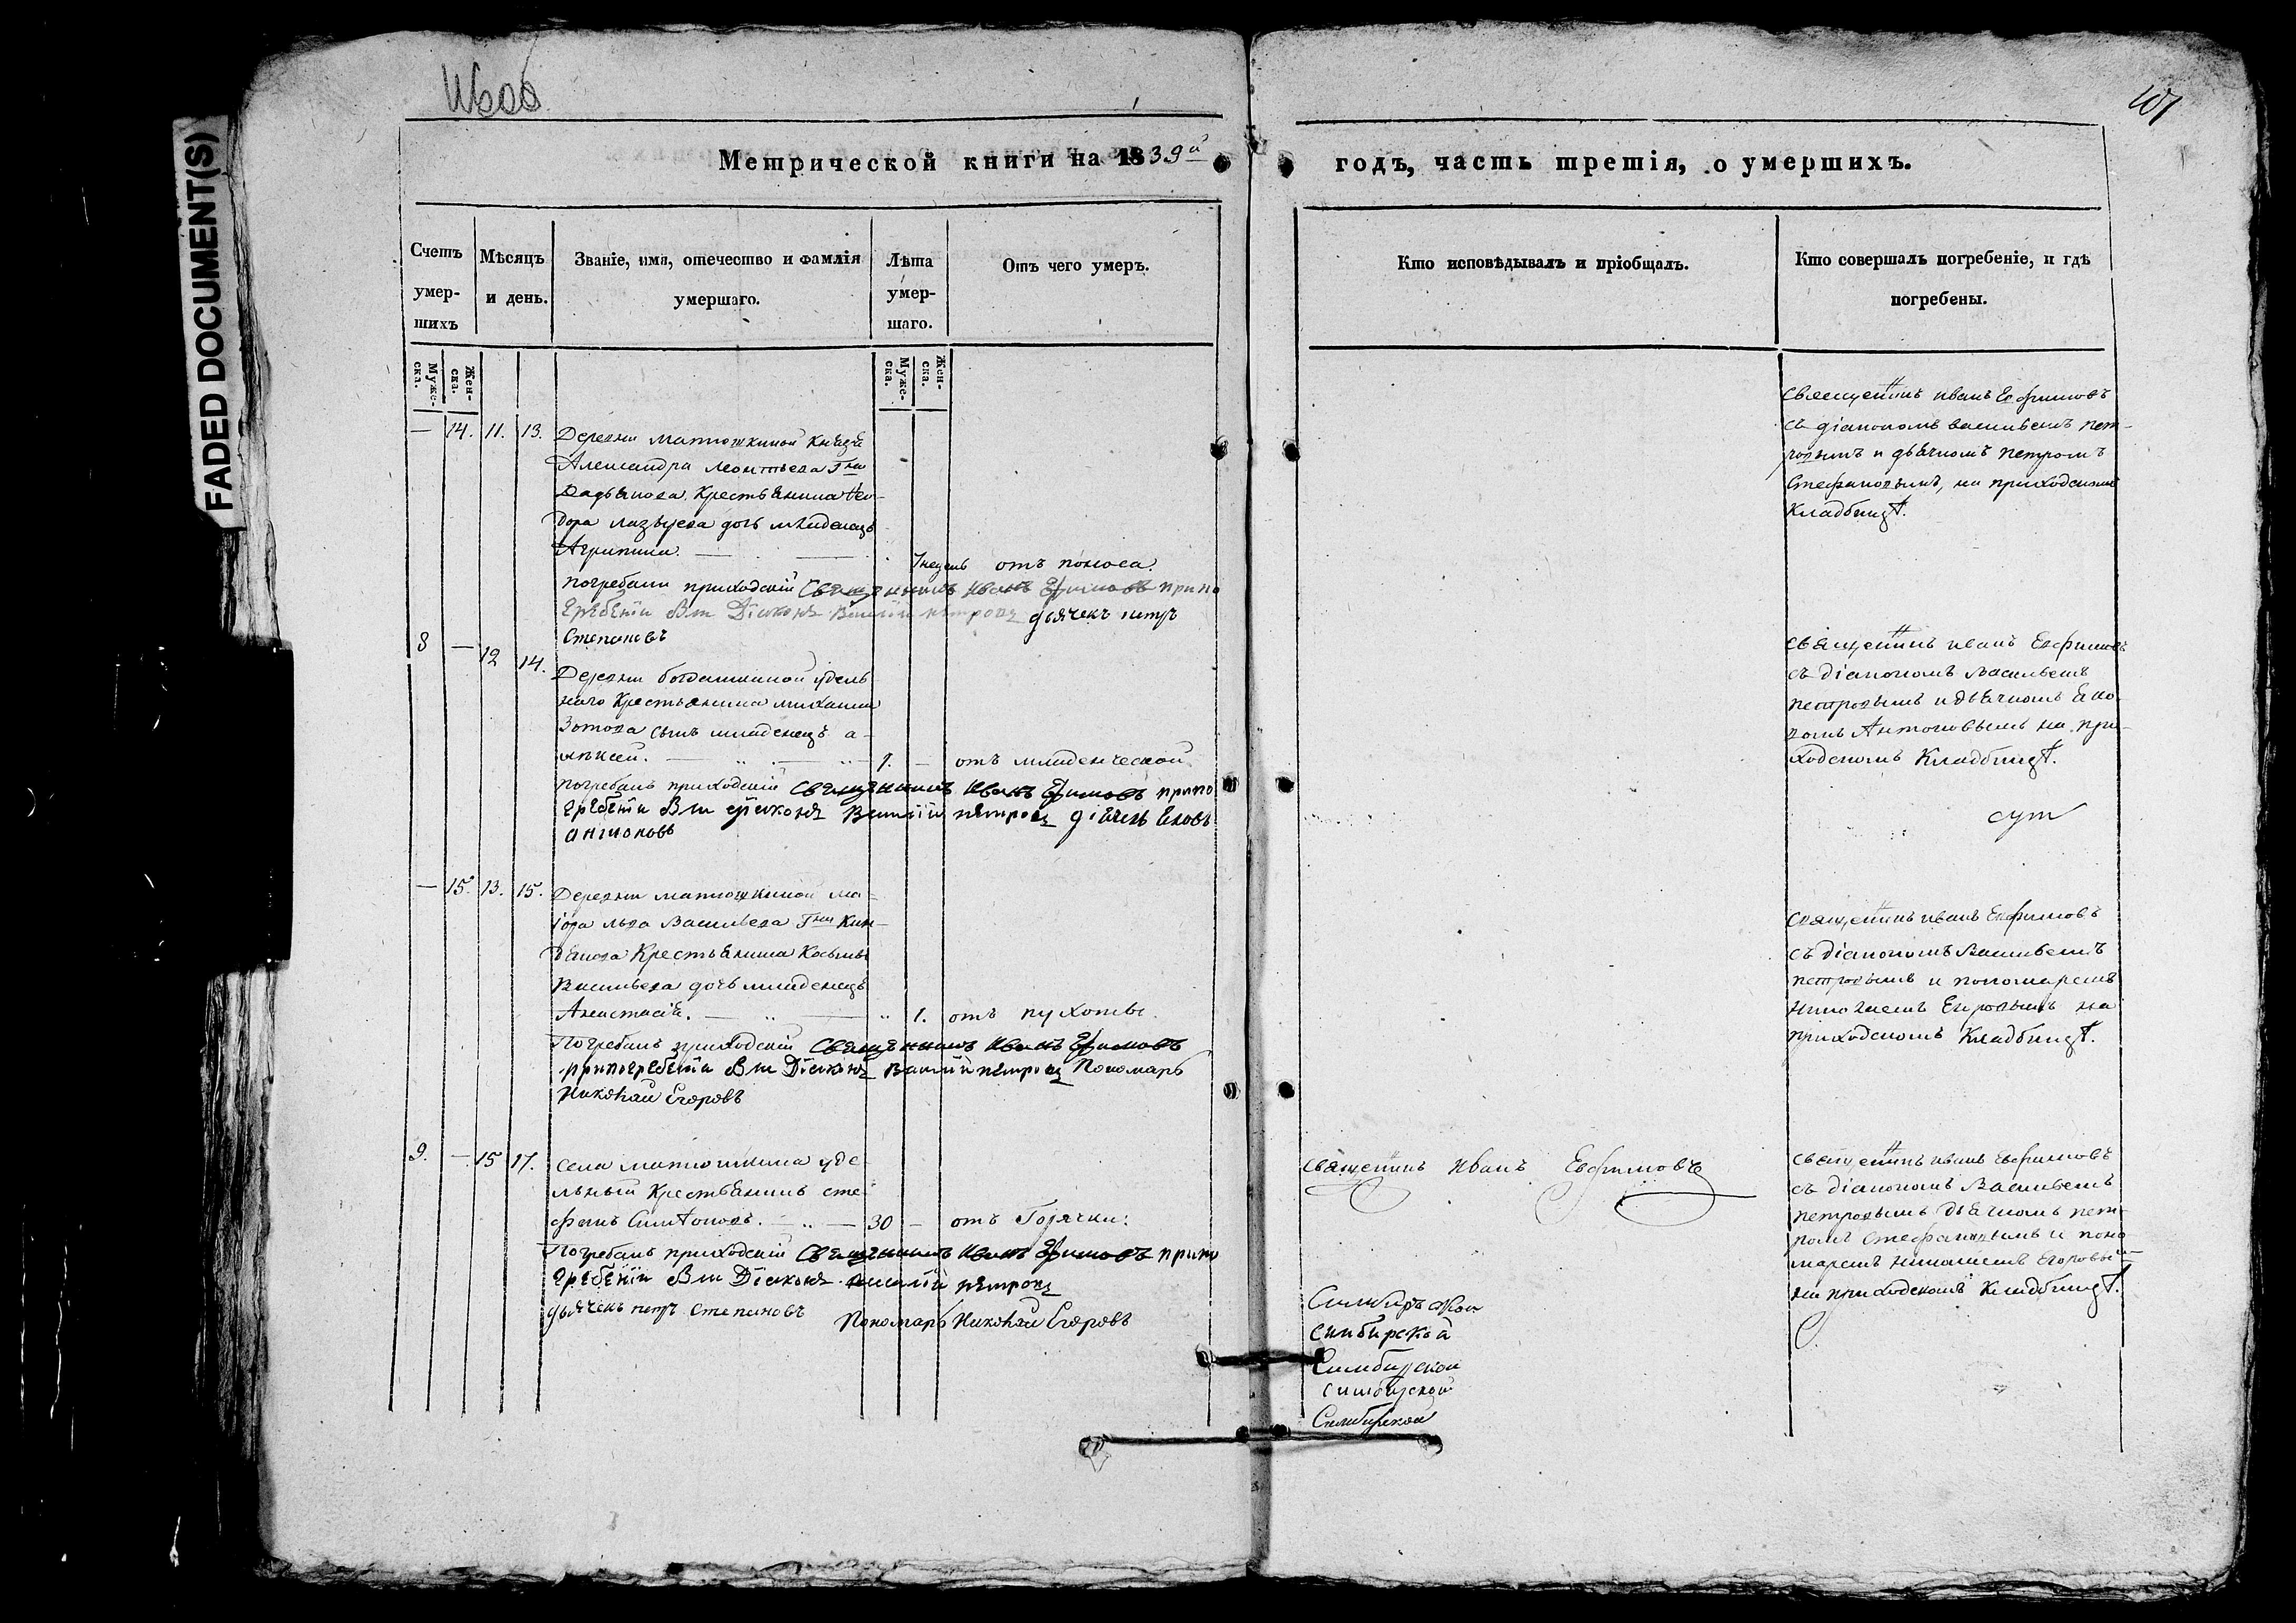 FADED DOCUMENT(S)
107
Метрической книги на 1839й
годъ, часть третія, о умершихъ.
Счетъ умер-шихъ
Мѣсяцъ и день.
Званіе, имя, отечество и фамлія умершаго.
Лѣта умер-шаго.
Отъ чего умеръ.
Кто исповѣдывалъ и пріобщалъ.
Кто совершалъ погребеніе, и гдѣ погребены.
Муже-ска.
Жен-ска.
Муже-ска.
Жен-ска.
— 14. 11. 13.
Деревни Матюшкиной Князя
Александра Леонтьева Гна
Дадьянова Крестьянина Ѳео-
дора дочь младенецъ
Агрипина.
отъ поноса.
погребали приходскій Священникъ Иванъ Ефимовъ при по
гребеніи были Діаконъ Василій Петровъ дьячекъ петръ
Степановъ
Священникъ иванъ Евфимовъ
съ діакономъ василіемъ пет-
ровымъ и дьячкомъ петромъ
Стефановымъ, на приходскомъ
Кладбищѣ.
8 — 12 14.
Деревни богдашкиной удѣль
наго Крестьянина михаила
Зотова сынъ младенецъ а-
лѣксѣй.
1. — отъ младенческой
погребалъ приходскій Священникъ Иванъ Ефимовъ при по
гребеніи были діаконъ Василій петровъ діячекъ Яковъ
антоновъ
Священникъ иванъ Евфимовъ
съ діакономъ василіемъ
петровымъ и дьячкомъ Яко-
вомъ Антоновымъ на при-
ходскомъ Кладбищѣ.
— 15. 13. 15.
Деревни матюшкиной ма-
іора льва Васильева Гна Кин-
дякова Крестьянина Косьмы
Васильева дочь младенецъ
Анастасія.
1. отъ сухотьы.
Погребалъ приходскій Священникъ Иванъ Ефимовъ
при погребеніи были Діаконъ Василій петровъ Пономарь
Николай Егоровъ
Священникъ иванъ Евфимовъ
съ діакономъ Василіемъ
петровымъ и пономаремъ
николаемъ Егоровымъ на
приходскомъ Кладбищѣ.
9. — 15 17.
села матюшкина удѣ-
льный Крестьянинъ сте-
фанъ
30 — отъ Горячки.
Погребалъ приходскій Священникъ Иванъ Ефимовъ при по
гребеніи были Діаконъ василій петровъ
дьячекъ петръ степановъ
Пономарь Николай Егоровъ
Священникъ Иванъ Евфимовъ
Священникъ иванъ евфимовъ
съ діакономъ Василіемъ
петровымъ дьячкомъ пет-
ромъ Стефановымъ и поно
маремъ николаемъ Егоровым
на приходскомъ Кладбищѣ.
Симбирской
Синбирской
Симбирской
симбирской
Симбирской